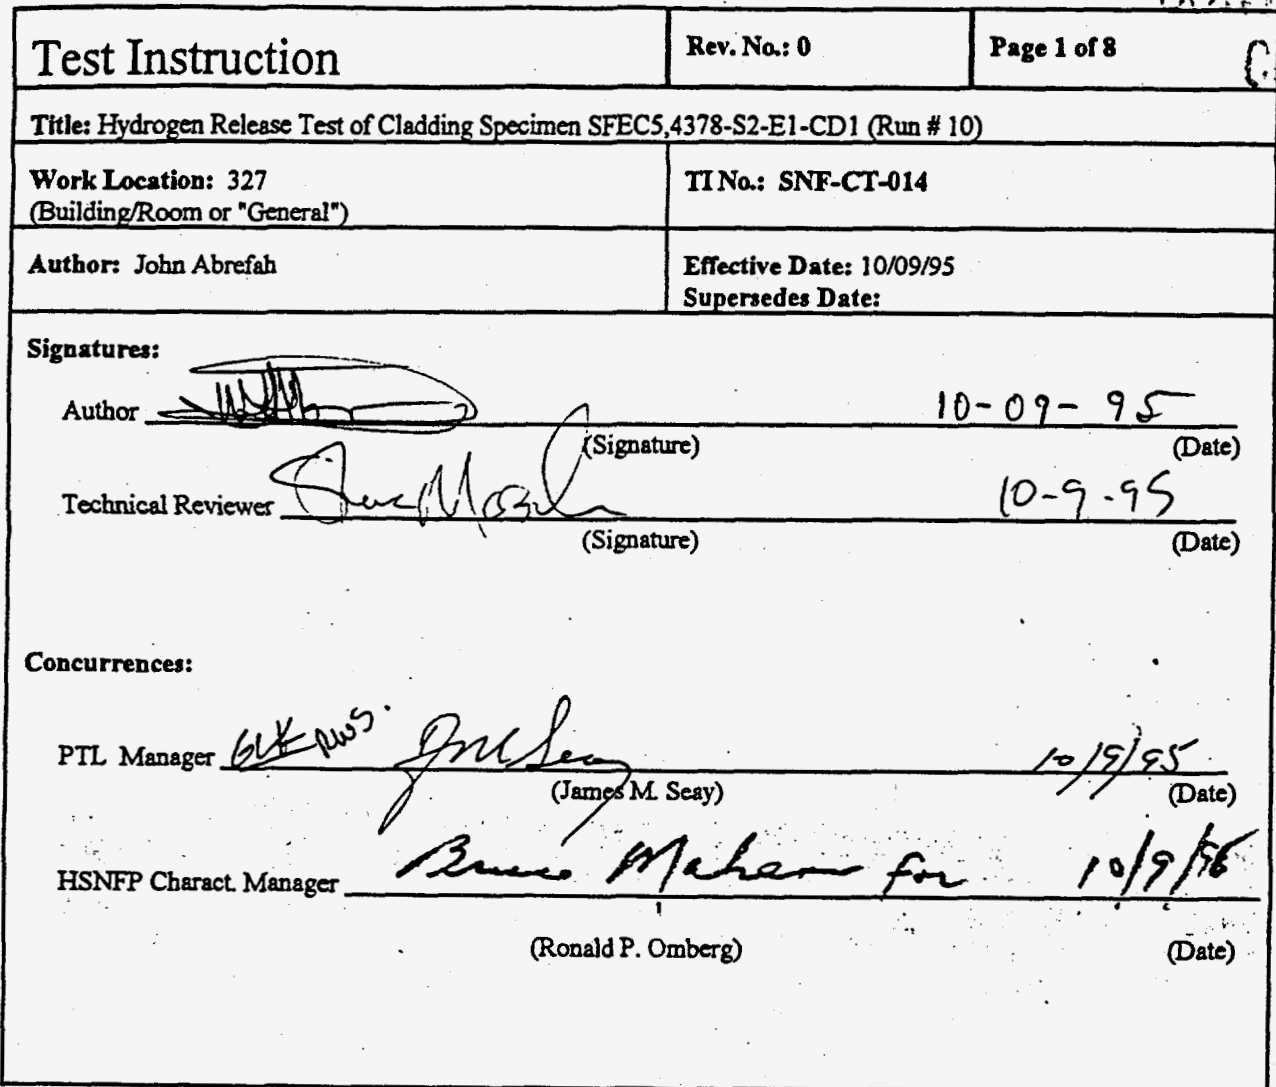 Test Instruction
Rev. No.: 0
Page 1 of 8
Title: Hydrogen Release Test of Cladding Specimen SFEC5,4378-S2-E1-CD1 (Run # 10)
Work Location: 327
(Building/Room or "General")
TI No.: SNF-CT-014
Author: John Abrefah
Effective Date: 10/09/95
Supersedes Date:
Signatures:
Author 10-09-95
(Signature) (Date)
Technical Reviewer 10-9-95
(Signature) (Date)
Concurrences:
PTL Manager JM Seay 10/9/95
(James M. Seay) (Date)
HSNFP Charact. Manager Bruce for 10/9/
(Ronald P. Omberg) (Date)